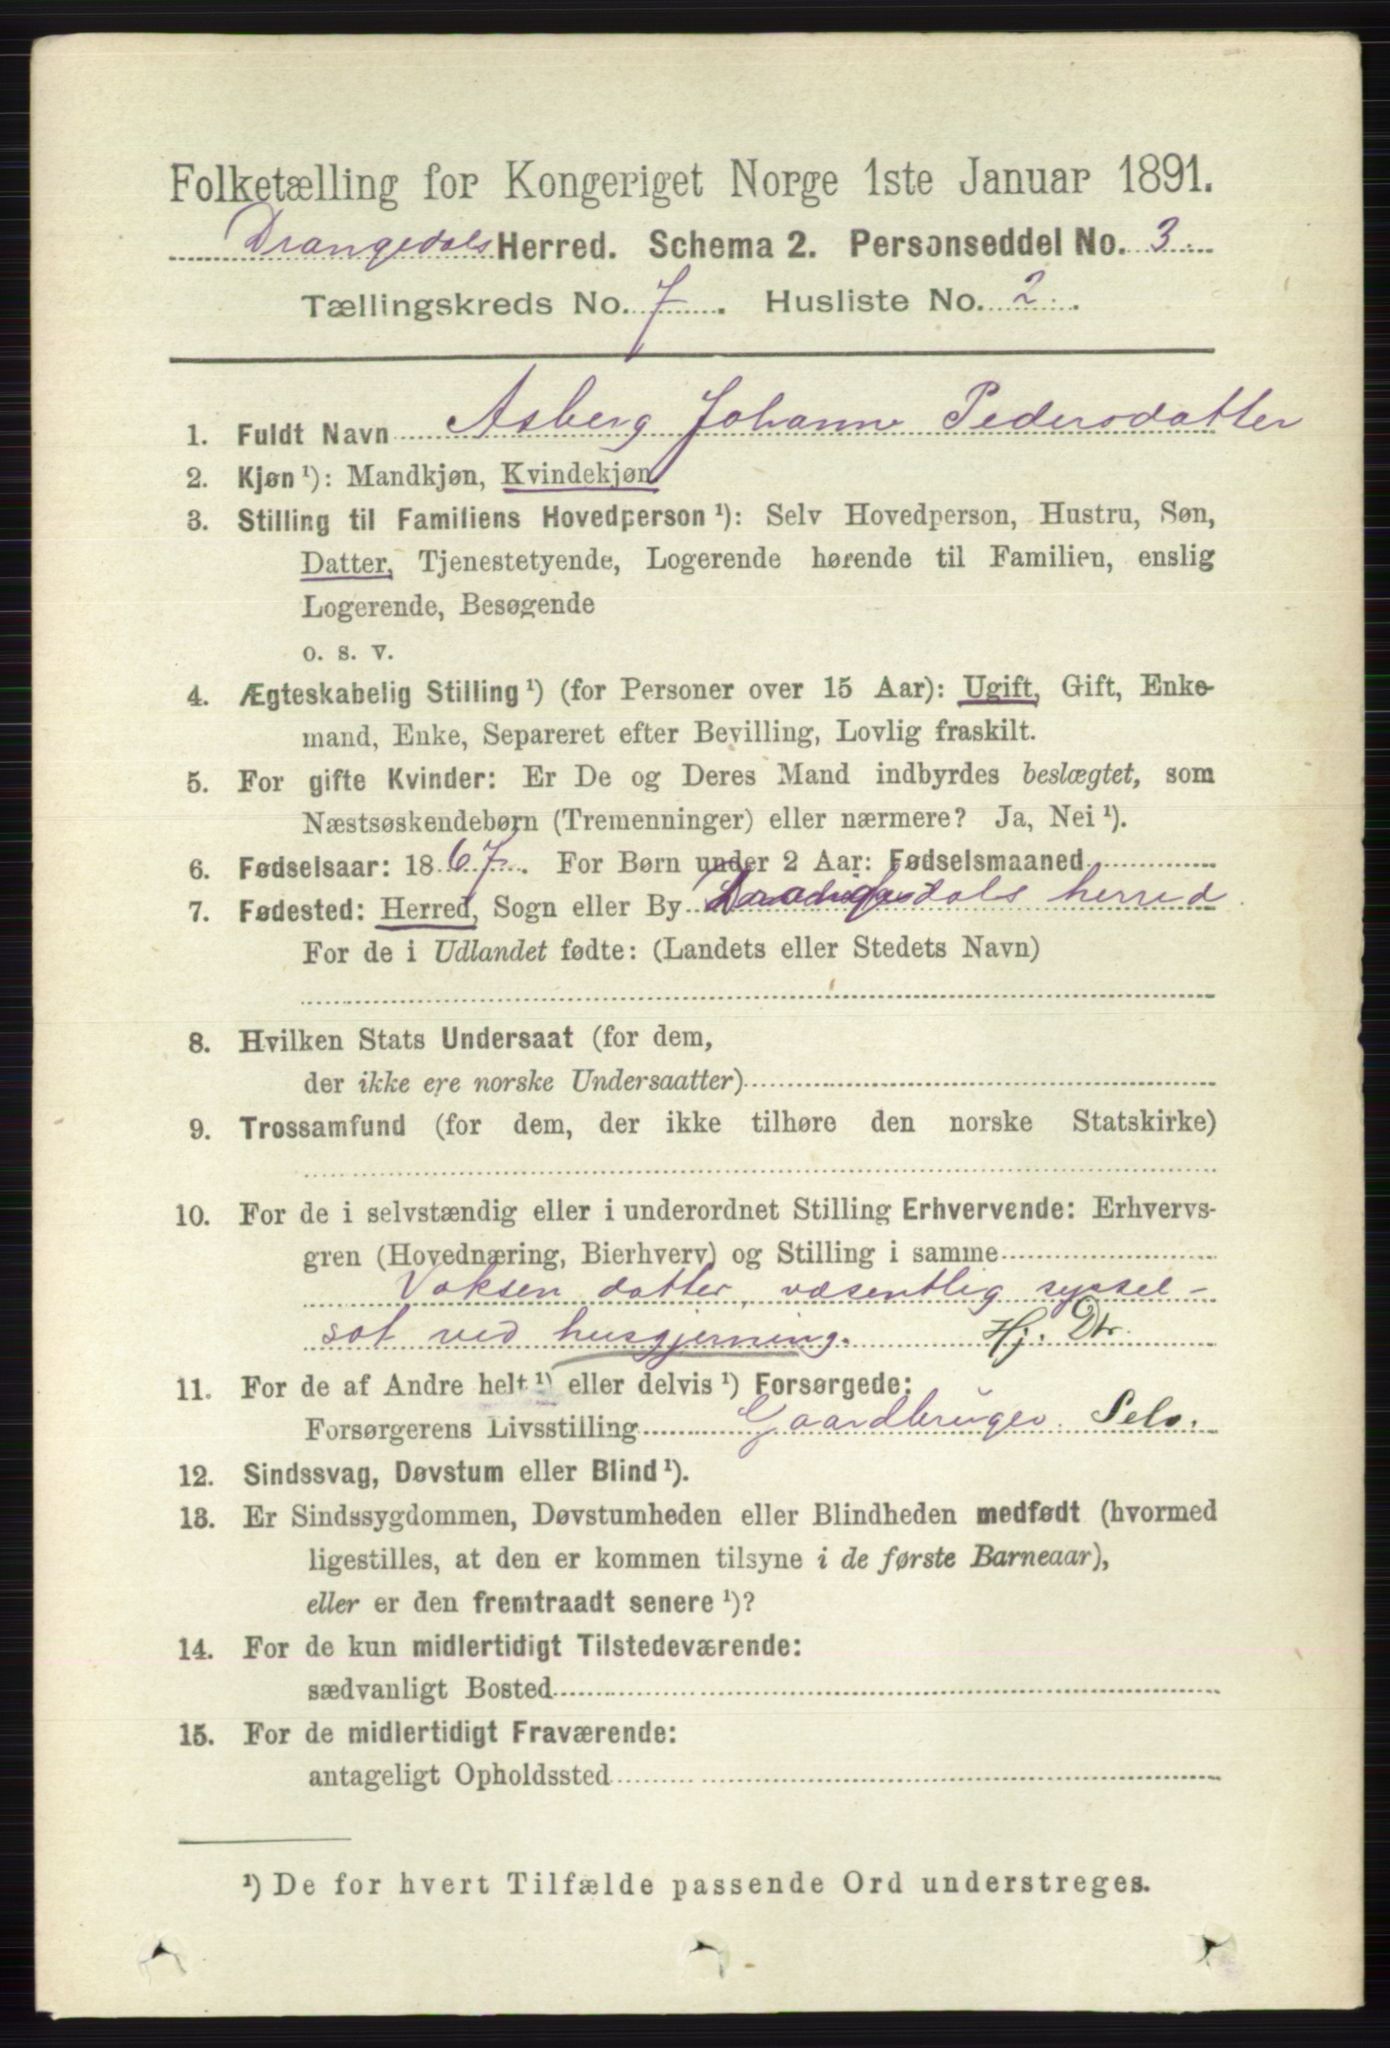 Folketælling for Kongeriget Norge 1ste Januar 1891.
Drangedals Herred. Schema 2. Personseddel No. 3.
Tællingskreds No. 7. Husliste No. 2.
1. Fuldt Navn Asberg Johanne Pedersdatter
2. Kjøn ¹): Mandkjøn, Kvindekjøn
3. Stilling til Familiens Hovedperson ¹): Selv Hovedperson, Hustru, Søn,
Datter, Tjenestetyende, Logerende hørende til Familien, enslig
Logerende, Besøgende
o. s. v.
4. Ægteskabelig Stilling ¹) (for Personer over 15 Aar): Ugift, Gift, Enke-
mand, Enke, Separeret efter Bevilling, Lovlig fraskilt.
5. For gifte Kvinder: Er De og Deres Mand indbyrdes beslægtet, som
Næstsøskendebørn (Tremenninger) eller nærmere? Ja, Nei ¹).
6. Fødselsaar: 1867. For Børn under 2 Aar: Fødselsmaaned
7. Fødested: Herred, Sogn eller By Drangedals herred
For de i Udlandet fødte: (Landets eller Stedets Navn)
8. Hvilken Stats Undersaat (for dem,
der ikke ere norske Undersaatter)
9. Trossamfund (for dem, der ikke tilhøre den norske Statskirke)
10. For de i selvstændig eller i underordnet Stilling Erhvervende: Erhvervs-
gren (Hovednæring, Bierhverv) og Stilling i samme
Voksen datter, væsentlig syssel-
sat ved husgjerning. Hj. Dtr.
11. For de af Andre helt ¹) eller delvis ¹) Forsørgede:
Forsørgerens Livsstilling Gaardbruger. Selv.
12. Sindssvag, Døvstum eller Blind ¹).
13. Er Sindssygdommen, Døvstumheden eller Blindheden medfødt (hvormed
ligestilles, at den er kommen tilsyne i de første Barneaar),
eller er den fremtraadt senere ¹)?
14. For de kun midlertidigt Tilstedeværende:
sædvanligt Bosted
15. For de midlertidigt Fraværende:
antageligt Opholdssted
¹) De for hvert Tilfælde passende Ord understreges.